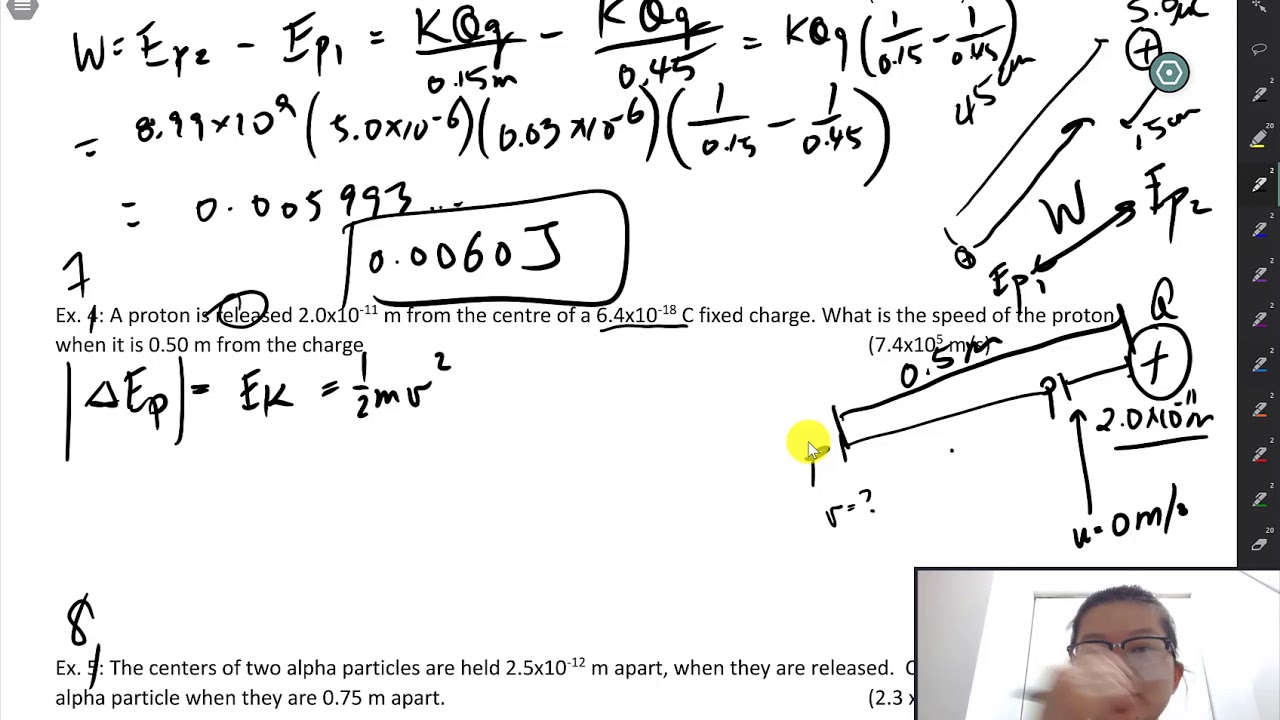 W = Ep2 - Ep1 = KQq/0.15m - KQq/0.45 = KQq(1/0.15 - 1/0.45)
= 8.99x10^9 (5.0x10^-6)(0.03x10^-6)(1/0.15 - 1/0.45)
= 0.005993...
0.0060J
+
45cm
15cm
W
Ep2
Ep1
+
7
Ex. 4: A proton is released 2.0x10^-11 m from the centre of a 6.4x10^-18 C fixed charge. What is the speed of the proton
when it is 0.50 m from the charge
(7.4x10^5 m/s)
|ΔEp| = EK = 1/2 mv^2
Q
+
0.5m
P
2.0x10^-11 m
v=?
u=0m/s
8
Ex. 5: The centers of two alpha particles are held 2.5x10^-12 m apart, when they are released.
alpha particle when they are 0.75 m apart.
(2.3 x